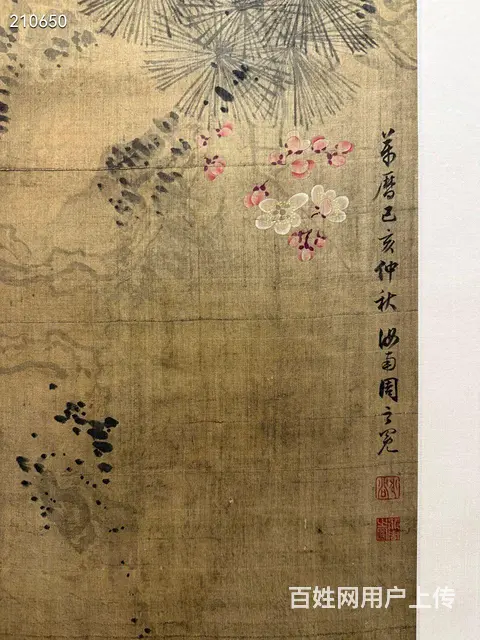 210650
萬曆己亥仲秋汝南周之冕
百姓网用户上传